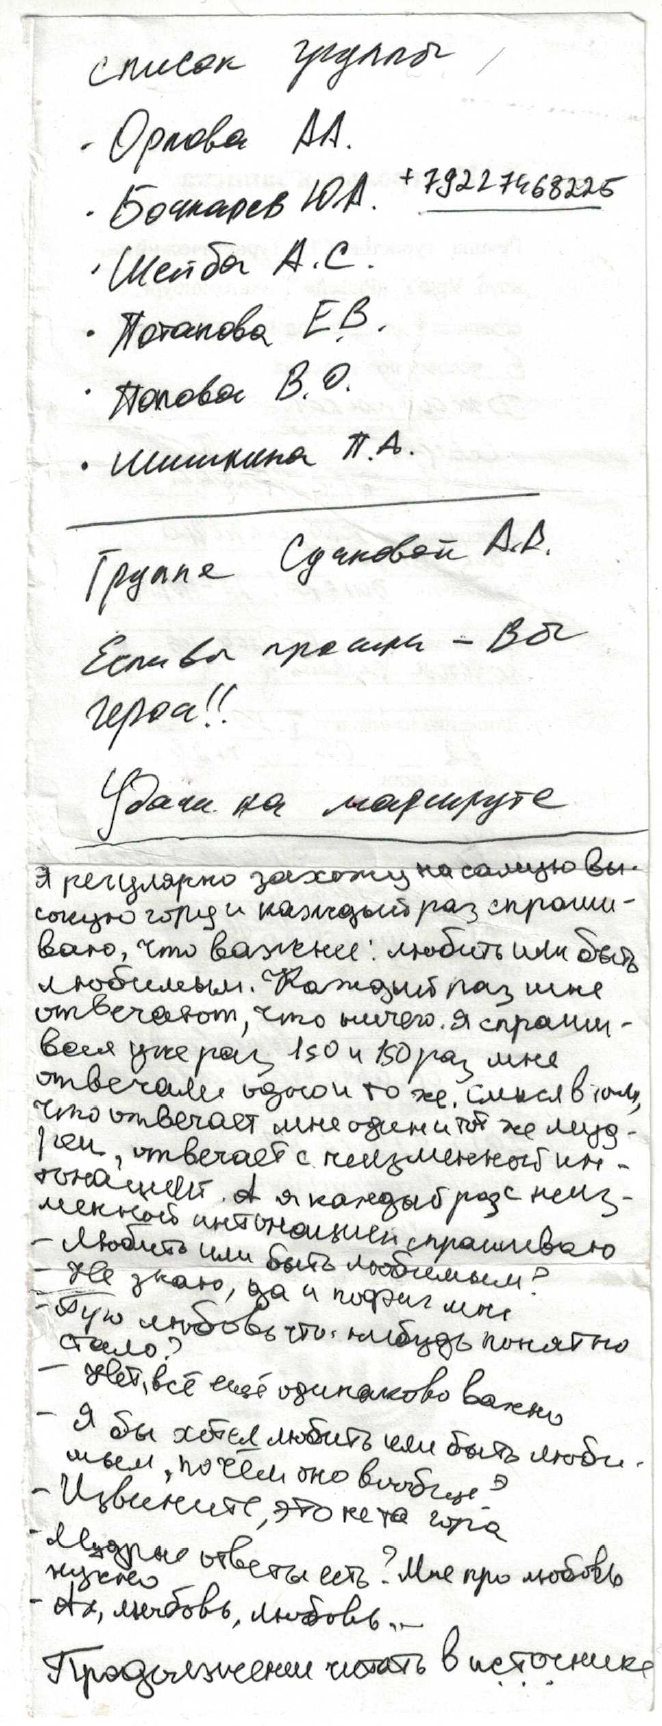 список группы
· Орлова АА.
· Бочкарев Ю.А. +79227468225
· Шейба А.С.
· Потапова Е.В.
· Попова В.О.
· Шишкина П.А.
Группе Сучковой А.А.
Если вы прошли – Вы
герои!!
Удачи на маршруте
Я регулярно захожу на самую вы-
сокую гору и каждый раз спраши-
ваю, что важнее: любить или быть
любимым. Каждый раз мне
отвечают, что ничего. Я спраши-
вал уже раз 150 и 150 раз мне
отвечали одно и то же. Смысл в том,
что отвечает мне один и тот же муд-
рец, отвечает с неизменной ин-
тонацией. А я каждый раз с неиз-
менной интонацией спрашиваю
– Любить или быть любимым?
– Не знаю, да и пофиг мне
– Про любовь что-нибудь понятно
стало?
– Нет, всё ещё одинаково важно
– Я бы хотел любить или быть люби-
мым, почём оно вообще?
– Извините, это не та гора
– Мудрые ответы есть? Мне про любовь
нужно
– Ах, любовь, любовь...
Продолжение читать в источнике